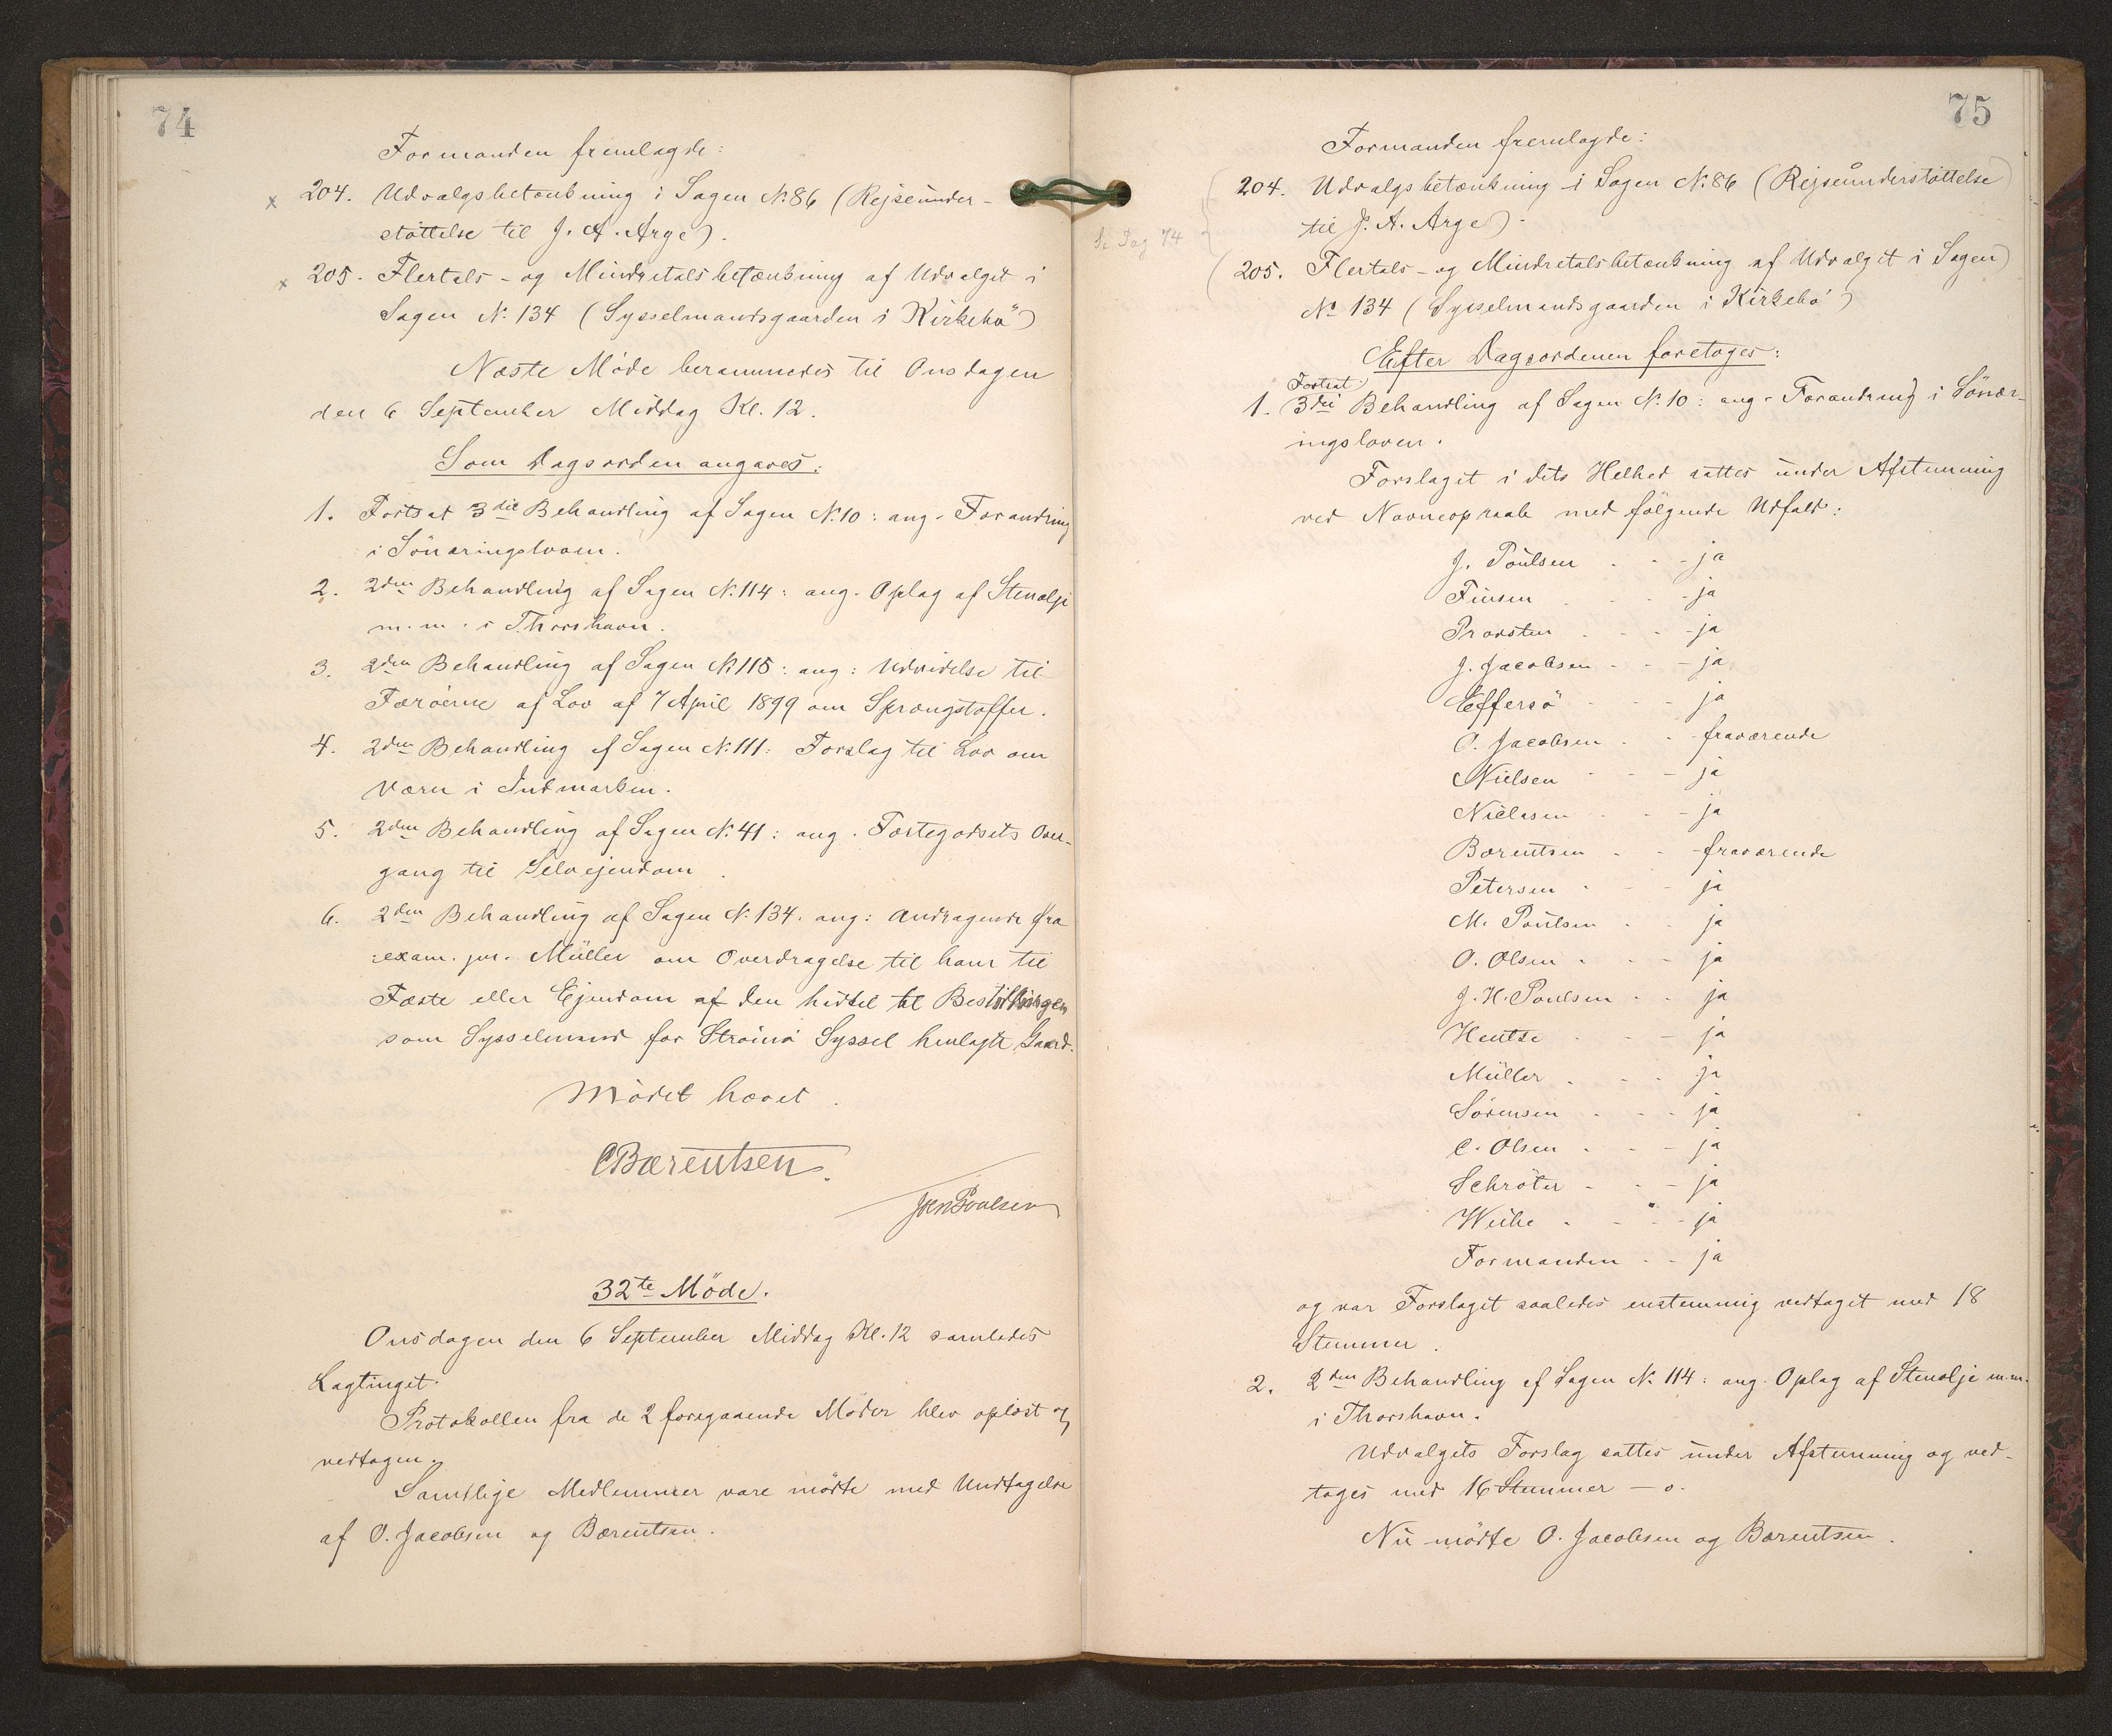 74
Formanden fremlagde:
x 204. Udvalgsbetænkning i Sagen N. 86 (Rejseunder-
støttelse til J. A. Arge).
x 205. Flertals- og Mindretalsbetænkning af Udvalget i
Sagen N. 134 (Sysselmandsgaarden i Kirkebø)
Næste Møde berammedes til Onsdagen
den 6 September Middag Kl. 12.
Som Dagsorden angaves:
1. Fortsat 3die Behandling af Sagen N. 10: ang. Forandring
i Sönæringsloven.
2. 2den Behandling af Sagen N. 114: ang. Oplag af Stenolje
m.m. i Thorshavn.
3. 2den Behandling af Sagen N. 115: ang: Udvidelse til
Færøerne af Lov af 7 April 1899 om Sprængstoffer.
4. 2den Behandling af Sagen N. 111: Forslag til Lov om
Værn i Indmarken.
5. 2den Behandling af Sagen N. 41: ang. Fæstegodsets Over-
gang til Selvejendom.
6. 2den Behandling af Sagen N. 134. ang: Andragende fra
exam. jur. Müller om Overdragelse til ham til
Fæste eller Ejendom af den hidtil til Bestillingen
som Sysselmand for Strømø Syssel henlagte Gaard.
Mødet hævet.
CBærentsen.
JenPoulsen
32te Möde.
Onsdagen den 6 September Middag Kl. 12 samledes
Lagtinget.
Protokollen fra de 2 foregaaende Møder blev oplæst og
vedtagen.
Samtlige Medlemmer vare mødte med Undtagelse
af O. Jacobsen og Bærentsen.
75
Formanden fremlagde:
204. Udvalgsbetænkning i Sagen N. 86 (Rejseunderstøttelse
til J. A. Arge).
Se Pag 74
205. Flertals- og Mindretalsbetænkning af Udvalget i Sagen
No 134 (Sysselmandsgaarden i Kirkebø)
Efter Dagsordenen foretoges:
Fortsat
1. 3die Behandling af Sagen N. 10: ang. Forandring i Sönær-
ingsloven.
Forslaget i dets Helhed sattes under Afstemning
ved Navneopraab med følgende Udfald:
J. Poulsen . - - ja
Finsen . - - ja
Provsten . - - ja
J. Jacobsen - - - ja
Effersö - - - ja
O. Jacobsen - - fraværende
Nielsen - - - ja
Niclasen - - - ja
Bærentsen - - fraværende
Petersen - - - ja
M. Poulsen - - ja
O. Olsen - - - ja
J. H. Poulsen - - ja
Hentze - - - ja
Müller . - - ja
Sørensen - - - ja
C. Olsen - - - ja
Schrøter - - - ja
Weihe - - - ja
Formanden - - ja
og var Forslaget saaledes enstemmig vedtaget med 18
Stemmer.
2. 2den Behandling af Sagen N. 114: ang. Oplag af Stenolje m.m.
i Thorshavn.
Udvalgets Forslag sattes under Afstemning og ved-
tages med 16 Stemmer — o.
Nu mødte O. Jacobsen og Bærentsen.